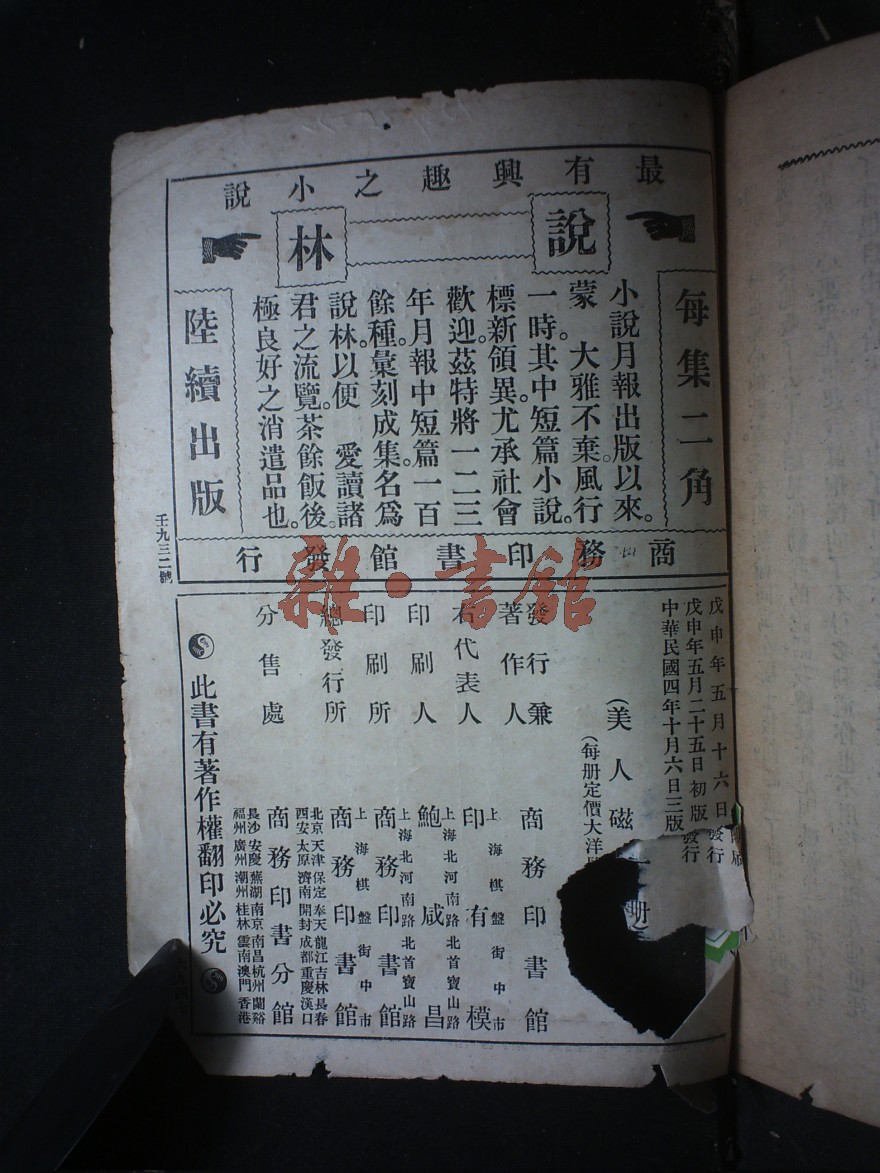 最有興趣之小說
說林
每集二角
小說月報出版以來。
蒙。大雅不棄風行
一時其中短篇小說。
標新領異尤承社會
歡迎。茲特將一二三
年月報中短篇一百
餘種。彙刻成集名爲
說林以便 愛讀諸
君之流覽。茶餘飯後。
極良好之消遣品也。
陸續出版
商務印書館發行
壬九三二號
雜·書館
戊申年五月十六日
戊申年五月二十五日初版發行
中華民國四年十月六日三版
(美人磁
(每册定價大洋
發行兼
著作人
商務印書館
右代表人
上海棋盤街中市
印有模
印刷人
上海北河南路北首寶山路
鮑咸昌
印刷所
上海北河南路北首寶山路
商務印書館
總發行所
上海棋盤街中市
商務印書館
分售處
北京天津保定奉天龍江吉林長春
西安太原濟南開封成都重慶漢口
商務印書分館
長沙安慶蕪湖南京南昌杭州蘭谿
福州廣州潮州桂林雲南澳門香港
此書有著作權翻印必究